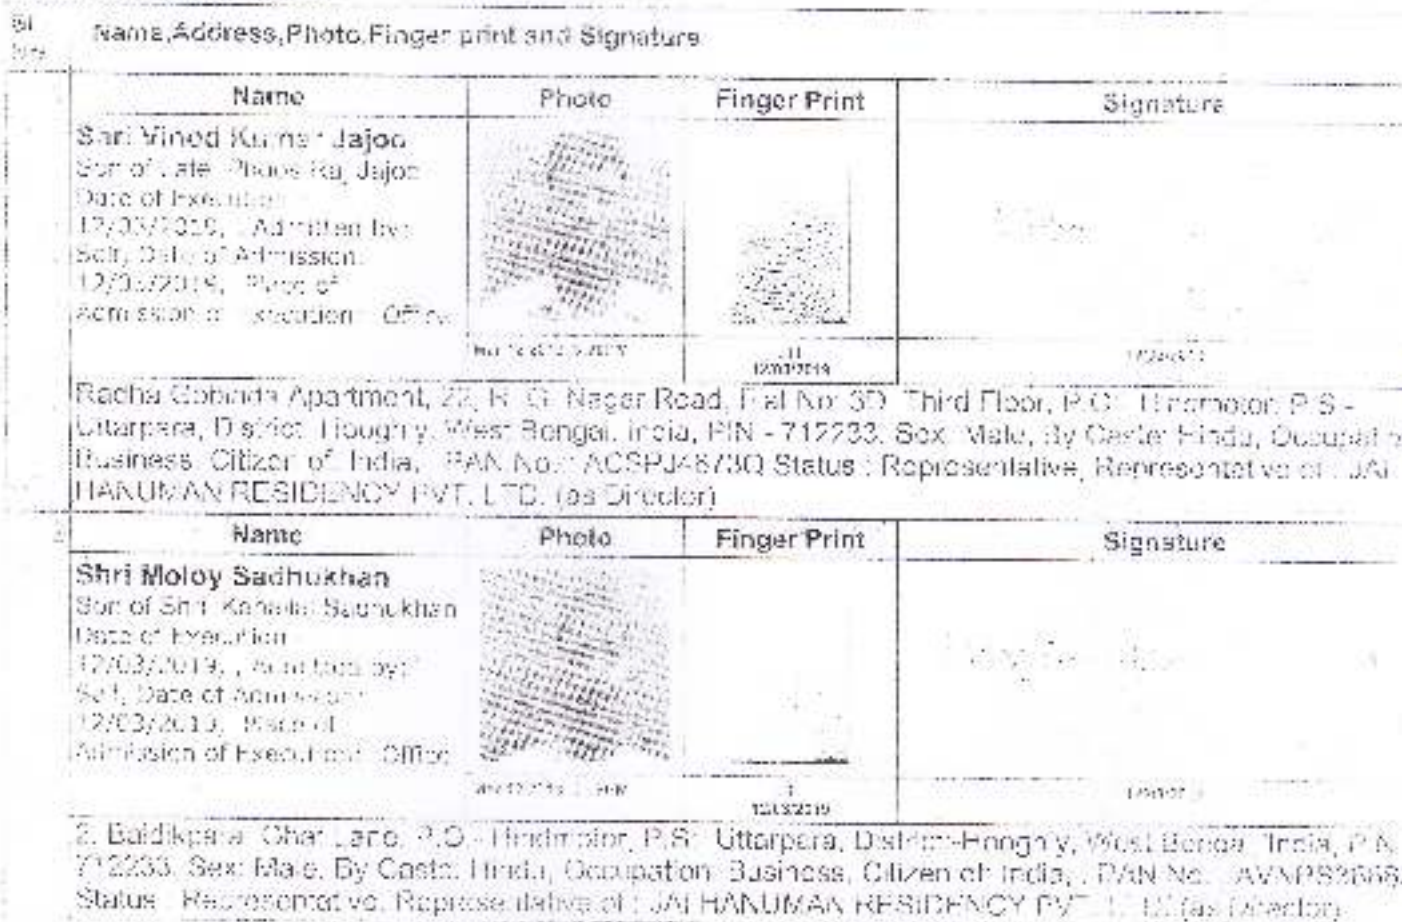 Sl
Name,Address,Photo,Finger print and Signature
Name Photo Finger Print Signature
Shri Vinod Kumar Jajoo
Son of Late Raj Jajoo
Date of Execution
12/03/2019, , Admitted by:
Self, Date of Admission:
12/03/2019, Place of
Admission of Execution : Office
12/03/2019
Radha Gobinda Apartment, 22, R. G. Nagar Road, Flat No: 3D, Third Floor, P.O:- Hindmotor, P.S:-
Uttarpara, District:-Hooghly, West Bengal, India, PIN - 712233, Sex: Male, By Caste: Hindu,
Business, Citizen of: India, , PAN No.:: Status : Representative, Representative of : JAI
HANUMAN RESIDENCY PVT. LTD. (as Director)
2 Name Photo Finger Print Signature
Shri Moloy Sadhukhan
Son of Shri Sadhukhan
Date of Execution
12/03/2019, , Admitted by:
Self, Date of Admission:
12/03/2019, Place of
Admission of Execution : Office
12/03/2019
2, Ghat Lane, P.O:- Hindmotor, P.S:- Uttarpara, District:-Hooghly, West Bengal, India, PIN
712233, Sex: Male, By Caste: Hindu, Occupation: Business, Citizen of: India, , PAN No.::
Status : Representative, Representative of : JAI HANUMAN RESIDENCY PVT. LTD. (as Director)